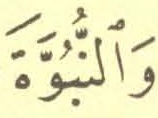 وَٱلنُّبُوَّةَ